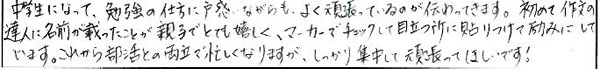 中学生になって、勉強の仕方に戸惑いながらも、よく頑張っているのが伝わってきます。初めて作文の
達人に名前が載ったことが親子でとても嬉しく、マーカーでチェックして目立つ所に貼りつけて励みにして
います。これから部活との両立で忙しくなりますが、しっかり集中して頑張ってほしいです!